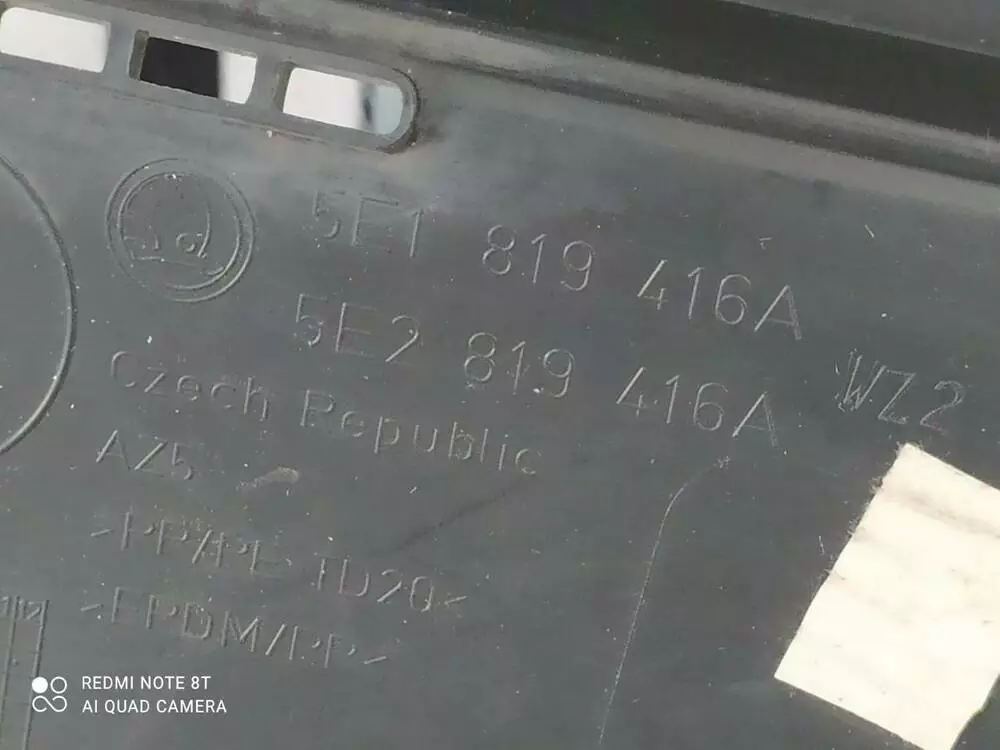 5E1 819 416A
5E2 819 416A WZ2
Czech Republic
AZ5
>PP/PE TD20<
>EPDM/PP<
REDMI NOTE 8T
AI QUAD CAMERA